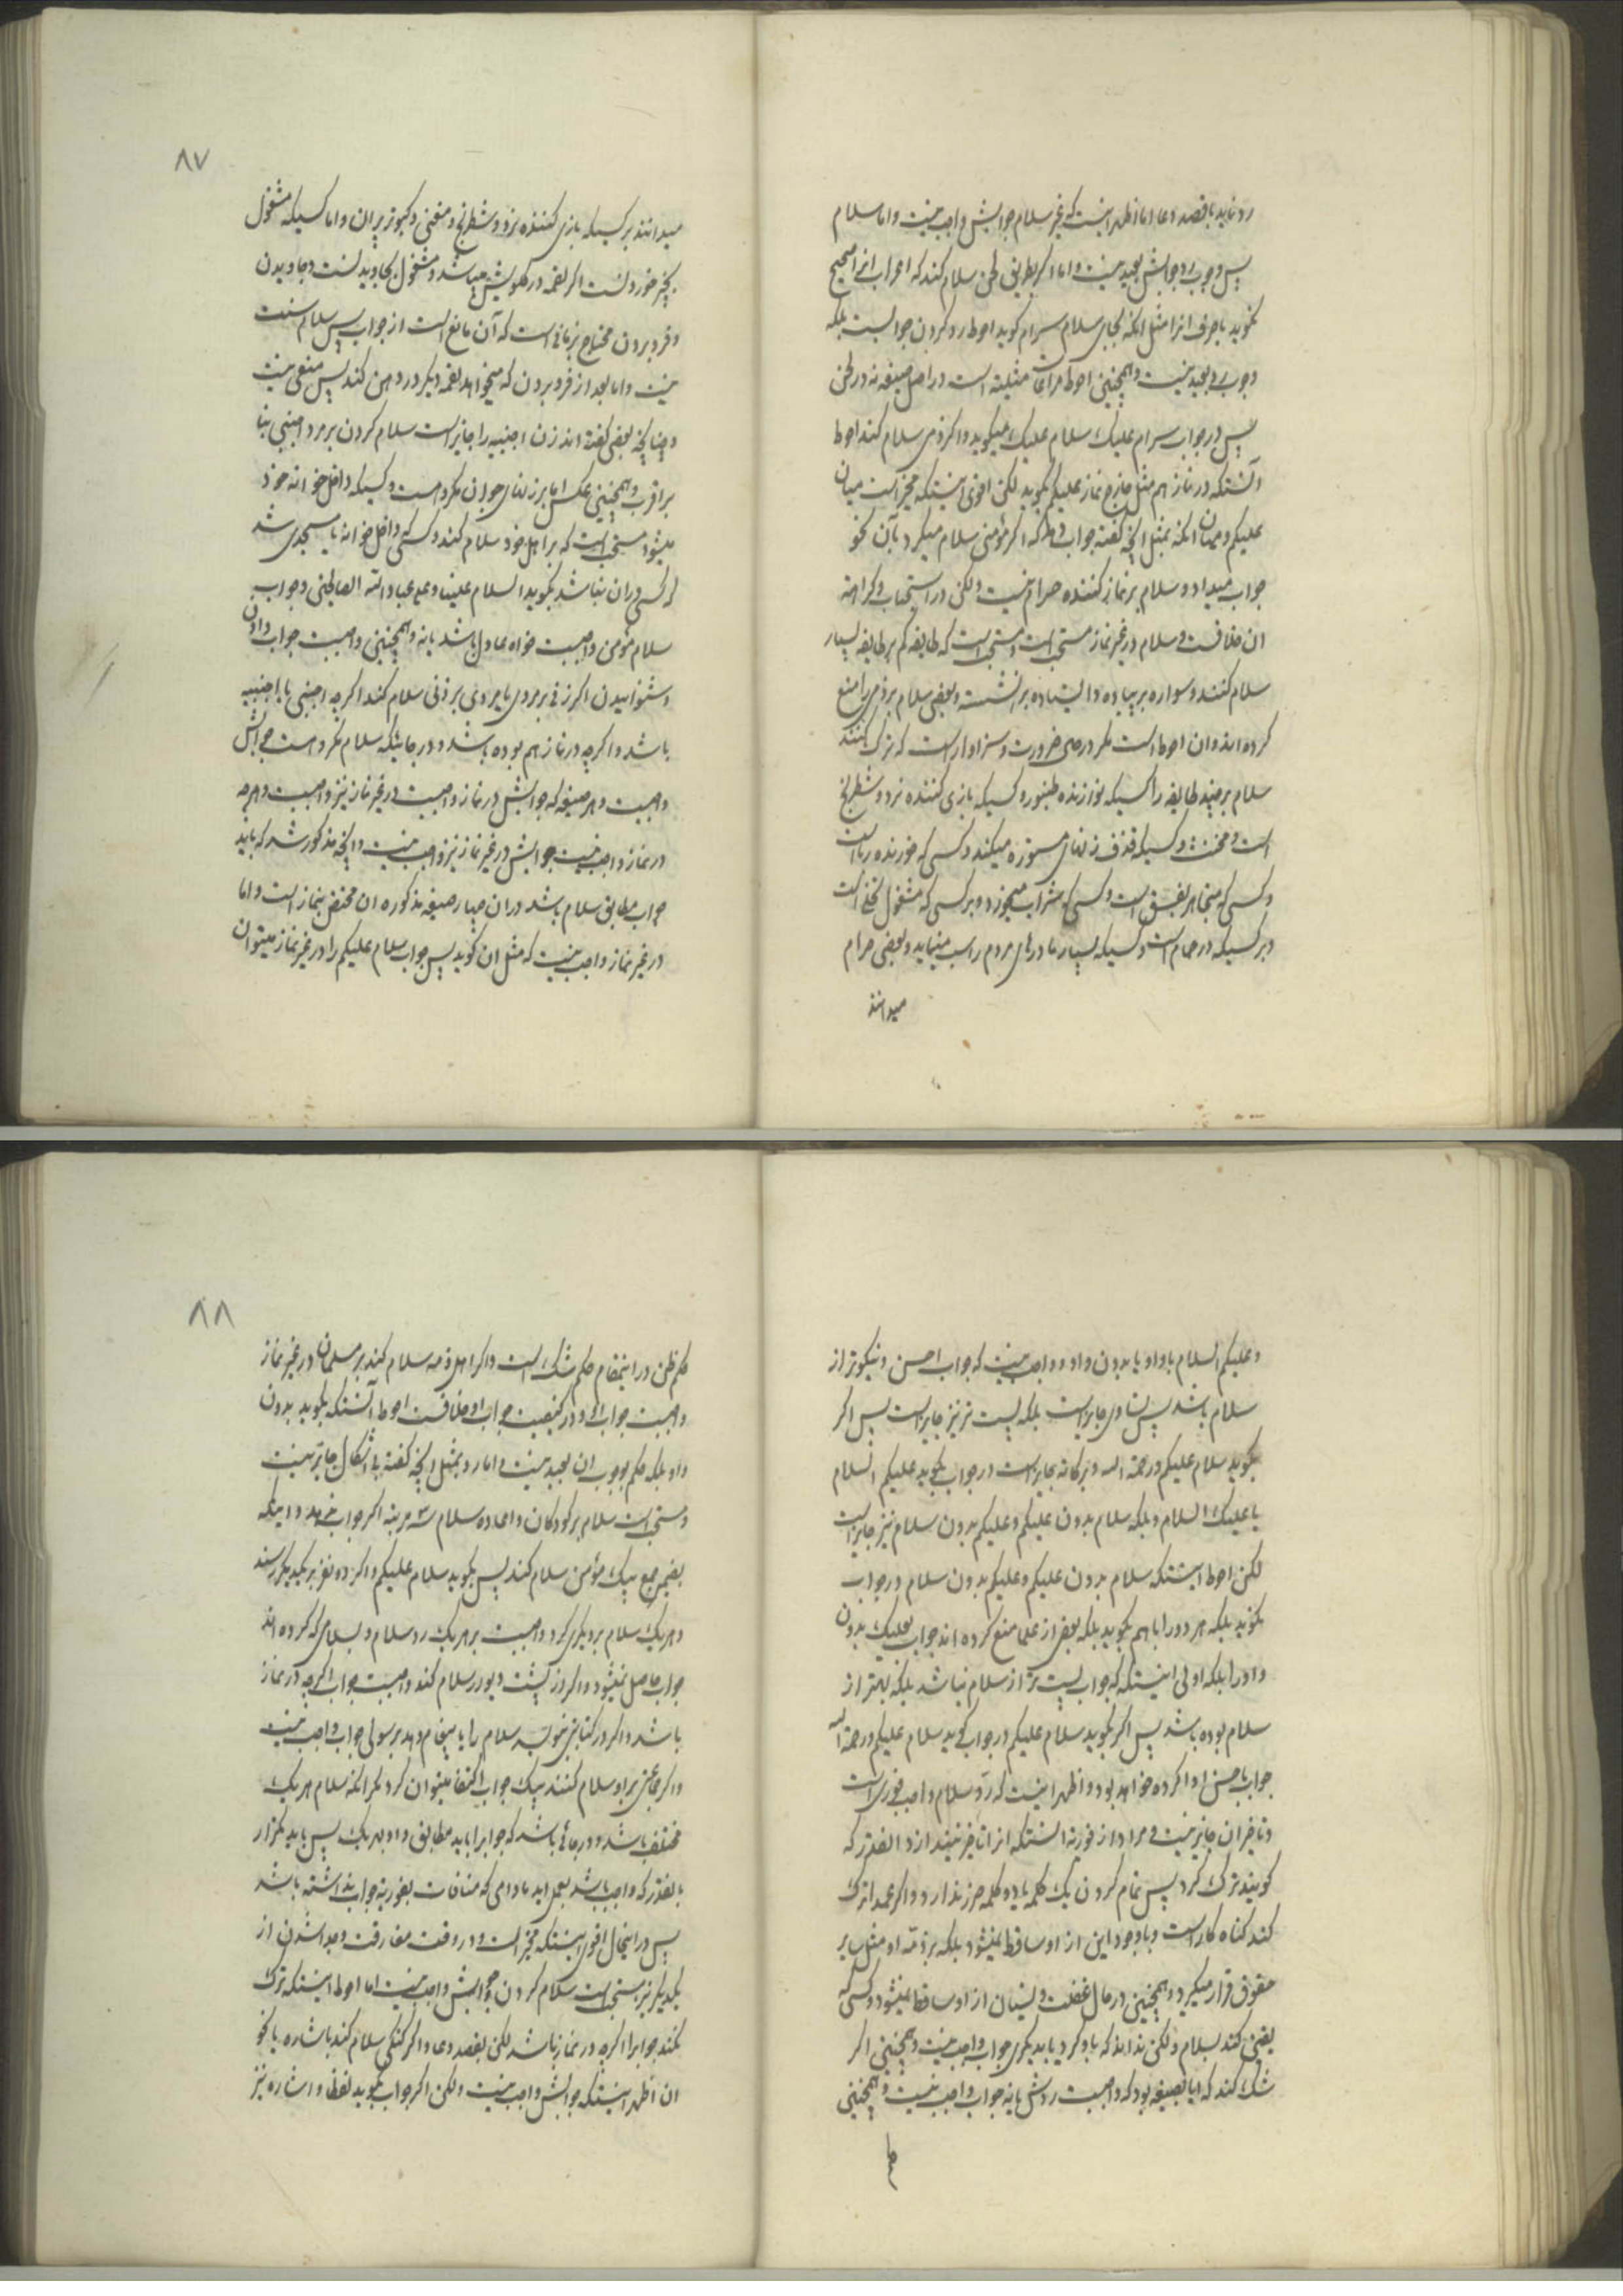 رد نماید یا قصد دعا و اما اظهر اینست که غیر سلام جوابش واجب نیست و اما سلام
پس وجوب رد جوابش بعید نیست و اما اگر بطریق لحن سلام کند که اعراب انرا صحیح
نگوید یا حرف انرا مثل انکه بجای سلام سرام گوید احوط رد کردن جوابست بلکه
وجوب بعید نیست و همچنین احوط مراعات مثلیته است در اصل صیغه نه در لحن
پس در جواب سرام علیک سلام علیک میگوید و اگر ذمی سلام کند احوط
آنستکه در نماز هم مثل خارج نماز علیکم بگوید لکن اقوی اینستکه مخیر است میان
علیکم و میان انکه بمثل انچه گفته جواب دهد که اگر مؤمنی سلام میکرد بآن نحو
جواب میداد و سلام بر نماز کننده حرام نیست ولکن در استحباب و کراهته
ان خلافست و سلام در غیر نماز مستحب است و مستحب است که طایفه کم بر طایفه بسیار
سلام کنند و سواره بر پیاده و ایستاده بر نشسته و بعضی سلام بر ذمی را منع
کرده اند و ان احوط است مگر در صورت ضرورت و سزاوار است که ترک کنند
سلام بر چند طایفه را کسیکه نوازنده طنبور و کسیکه بازی کننده نرد و شطرنج
است و مخنث و کسیکه قذف زنهای مستوره میکند و کسی که خورنده ربا است
و کسی که متجاهر بفسق است و کسی که شراب میخورد و بر کسی که مشغول تخلی است
و بر کسیکه در حمام است و کسیکه بسیار مادرهای مردم را سب مینماید و بعضی حرام
میدانند
٨٧
میدانند بر کسیکه بازی کننده نرد و شطرنج و مغنی و کبوتر پران و اما کسیکه مشغول
بچیز خوردنست اگر لقمه در گلویش میباشد و مشغول بجاویدنست و جاویدن
و فرو بردن محتاج بزمانی است که آن مانع است از جواب پس سلام سنت
نیست و اما بعد از فرو بردن که میخواهد لقمه دیگر در دهن کند پس منعی نیست
و چنانچه بعضی گفته اند زن اجنبیه را جایز است سلام کردن بر مرد اجنبی بنا
بر اقرب و همچنین عکس اما بر زنهای جوان مکروهست و کسیکه داخل خوانه خود
میشود مستحب است که بر اهل خود سلام کند و کسی که داخل خوانه یا مسجدی شد
که کسی در ان نباشد بگوید السلام علینا و علی عباد الله الصالحین و جواب
سلام مؤمن واجبست خواه عادل باشد یا نه و همچنین واجبست جواب دادن
و شنوانیدن اگر زنی بر مردی یا مردی بر زنی سلام کند اگر چه اجنبی یا اجنبیه
باشد و اگر چه در نماز هم بوده باشد و در جائیکه سلام مکروهست جوابش
واجبست و هر صیغه که جوابش در نماز واجبست در غیر نماز نیز واجبست و هر چه
در نماز واجب نیست جوابش در غیر نماز نیز واجب نیست و انچه مذکور شد که باید
جواب مطابق سلام باشد در ان چهار صیغه مذکوره ان مختص بنماز است و اما
در غیر نماز واجب نیست که مثل ان گوید پس جواب سلام علیکم را در غیر نماز میتوان
و علیکم السلام با واو یا بدون واو و واجب نیست که جواب احسن و نیکوتر از
سلام باشد پس تساوی جایز است بلکه پست تر نیز جایز است پس اگر
بگوید سلام علیکم و رحمة الله و برکاته جایز است در جواب بگوید علیکم السلام
یا علیک السلام و بلکه سلام بدون علیکم و علیکم بدون سلام نیز جایز است
لکن احوط اینستکه سلام بدون علیکم و علیکم بدون سلام در جواب
نگوید بلکه هر دو را با هم بگوید بلکه بعضی از علما منع کرده اند جواب بعلیک بدون
واو را بلکه اولی اینستکه که جواب پست تر از سلام نباشد بلکه بهتر از
سلام بوده باشد پس اگر بگوید سلام علیکم در جواب گوید سلام علیکم و رحمة الله
جواب باحسن ادا کرده خواهد بود و اظهر اینست که رد سلام واجب فوری است
و تاخیر ان جایز نیست و مراد از فوریة انستکه انرا تاخیر نیندازد انقدر که
گویند ترک کرد پس تمام کردن یک کلمه یا دو کلمه ضرر ندارد و اگر عمدا ترک
کند گناه کار است و با وجود این از او ساقط نمیشود بلکه بر ذمه او مثل سایر
حقوق قرار میگیرد و همچنین در حال غفلت و نسیان از او ساقط نمیشود و کسی که
یقین کند بسلام ولکن نداند که باو کرد یا بدیگری جواب واجب نیست و همچنین اگر
شک کند که ایا بصیغه بود که واجبست ردش یا نه جواب واجب نیست و همچنین
حکم
٨٨
حکم ظن در اینمقام حکم شک است و اگر اهل ذمه سلام کند بر مسلمان در غیر نماز
واجبست جواب او و در کیفیت جواب او خلافست احوط آنستکه بگوید بدون
واو بلکه حکم بوجوب ان بعید نیست و اما رد بمثل انچه گفته بی اشکال جایز نیست
و مستحب است سلام بر کودکان و اعاده سلام سه مرتبه اگر جواب نشنود و اینکه
بضمیر جمع بیک مؤمن سلام کند پس بگوید سلام علیکم و اگر دو نفر بر یکدیگر رسند
و هر یک سلام بر دیگری کرد واجبست بر هر یک رد سلام و بسلامی که کرده اند
جواب حاصل نمیشود و اگر از پشت دیوار سلام کند واجبست جواب اگر چه در نماز
باشد و اگر در کتابتی بنویسد سلام را یا پیغام دهد برسولی جواب واجب نیست
و اگر جماعتی بر او سلام کنند بیک جواب اکتفا میتوان کرد مگر انکه سلام هر یک
مختلف باشد و در جائی باشد که جوابرا باید مطابق داد بهر یک پس باید تکرار
بانقدر که واجب باشد بعمل اید مادامی که منافات بفوریة جواب نداشته باشد
پس در اینحال اقوی اینستکه مخیر است و در وقت مفارقت و جدا شدن از
یکدیگر نیز مستحب است سلام کردن و جوابش واجب نیست اما احوط اینستکه ترک
نکند جوابرا اگر چه در نماز باشد لکن بقصد دعا و اگر گنگی سلام کند باشاره یا نحو
ان اظهر اینستکه جوابش واجب نیست ولکن اگر جواب بگوید لفظا و اشاره نیز